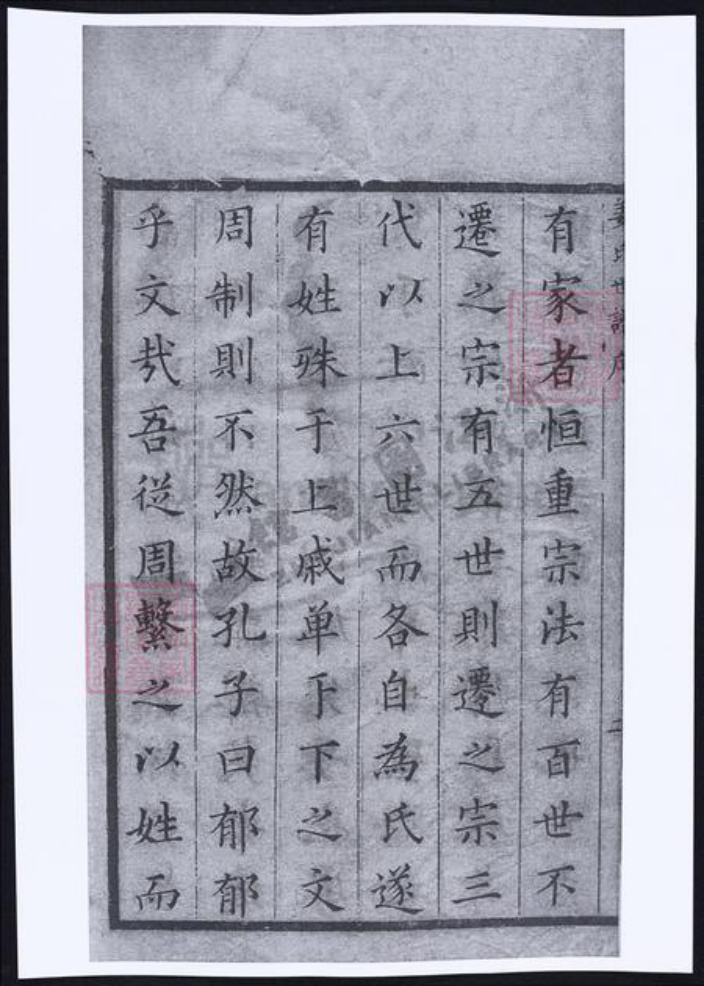 有家者恒重宗法有百世不
遷之宗有五世則遷之宗三
代以上六世而各自為氏遂
有姓殊于上戚单下下之文
周制則不然故孔子曰郁郁
乎文㦲吾從周繫之以姓而